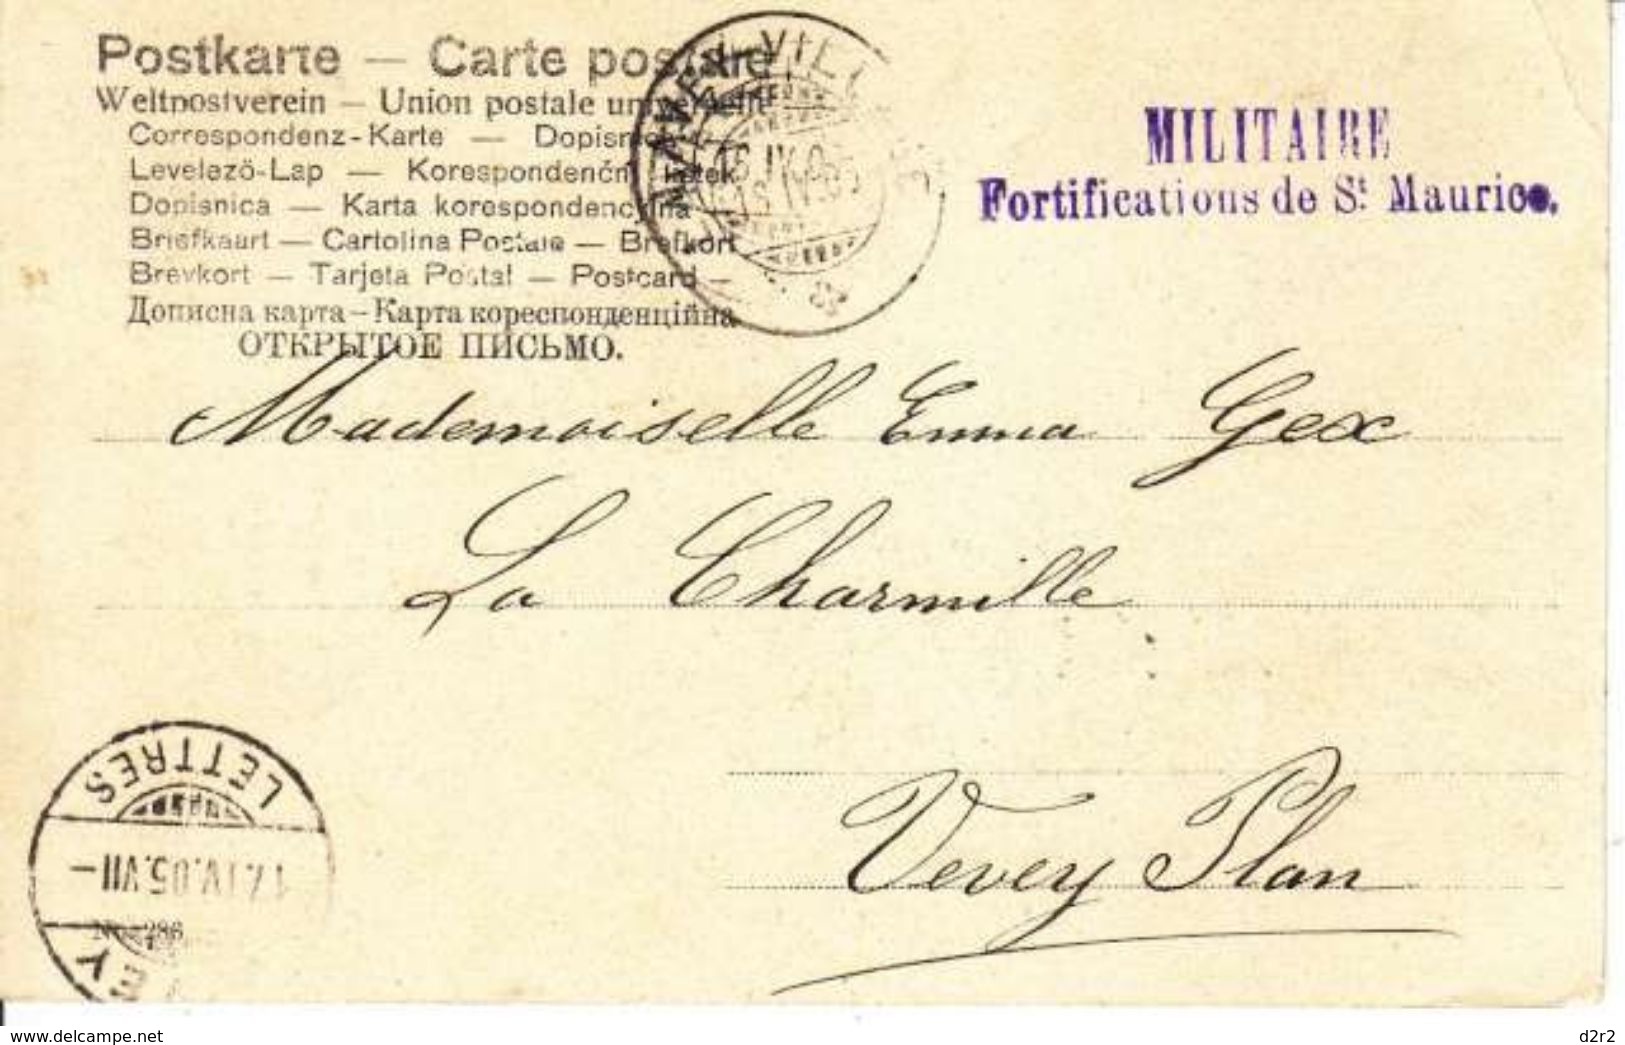 Postkarte — Carte postale
Weltpostverein — Union postale universelle
MILITAIRE
Correspondenz-Karte — Dopisnice —
Levelezö-Lap — Korespondenčni listek
Fortifications de St Maurice.
Dopisnica — Karta korespondencyjna —
Briefkaart — Cartolina Postale — Brefkort
Brevkort — Tarjeta Postal — Postcard —
Дописна карта — Карта кореспонденційна
ОТКРЫТОЕ ПИСЬМО.
16.IV.05
Mademoiselle Emma Gex
La Charmille
Vevey Plan
LETTRES
17.IV.05.VII-
286
EY
www.delcampe.net
d2r2